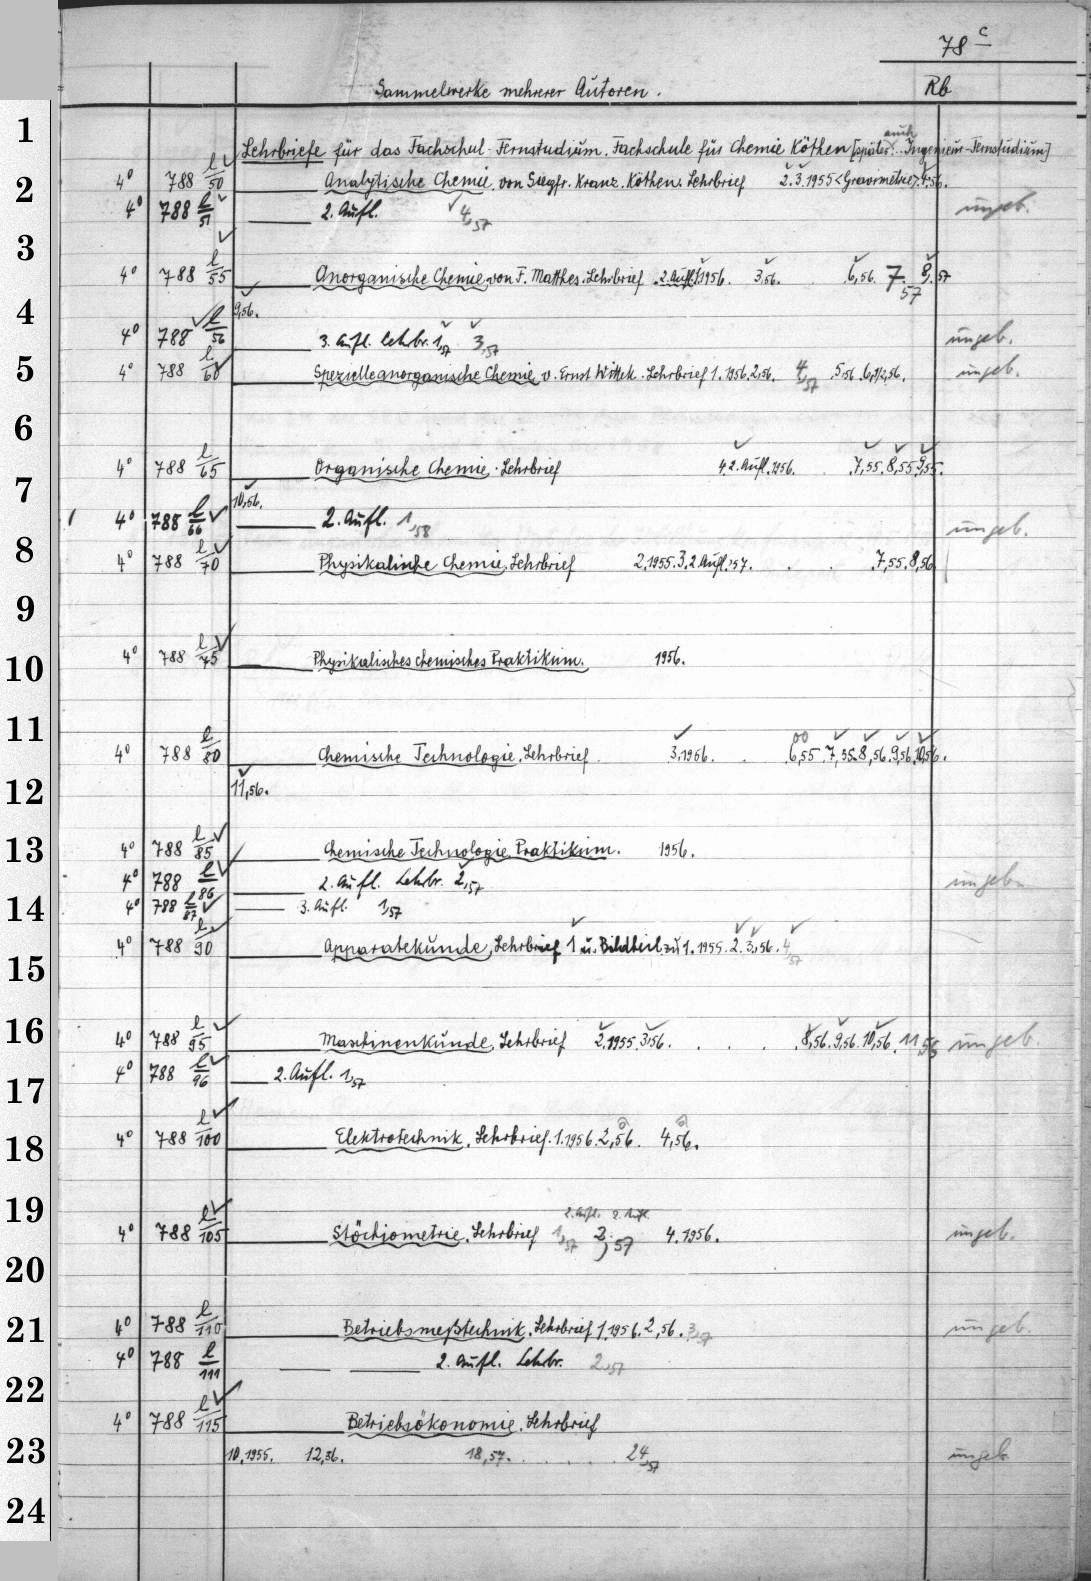 78 c
Sammelwerke mehrerer Autoren. Rb
1
Lehrbriefe für das Fachschul-Fernstudium. Fachschule für Chemie Köthen [später auch: Ingenieur-Fernstudium]
2 4° 788 l/50 Analytische Chemie von Siegfr. Kranz. Köthen. Lehrbrief 2. 3. 1955 <Gravimetrie>. 4,56.
4° 788 l/51 2. Aufl. 4,57 ungeb.
3
4° 788 l/55 Anorganische Chemie von F. Matthes. Lehrbrief 2. Aufl. 1956. 3,56. 6,56. 7,57 8,57
4 9,56.
4° 788 l/56 3. Aufl. Lehrbr. 1,57 3,57 ungeb.
5 4° 788 l/60 Spezielle anorganische Chemie v. Ernst Wittek. Lehrbrief 1. 1956. 2,56. 4,57 5,56. 6,1/2,56. ungeb.
6
4° 788 l/65 Organische Chemie. Lehrbrief 4,2. Aufl. 1956. 7,55. 8,55 9,55.
7 10,56.
4° 788 l/66 2. Aufl. 1,58 ungeb.
8 4° 788 l/70 Physikalische Chemie. Lehrbrief 2,1955. 3,2 Aufl. 57. 7,55. 8,56
9
10 4° 788 l/75 Physikalisches chemisches Praktikum. 1956.
11
4° 788 l/80 Chemische Technologie. Lehrbrief 3,1956. 6,55. 7,55. 8,56. 9,56. 10,56.
12 11,56.
13 4° 788 l/85 Chemische Technologie. Praktikum. 1956.
4° 788 l/86 2. Aufl. Lehrbr. 2,57 ungeb.
14 4° 788 l/87 3. Aufl. 1,57
4° 788 l/90 Apparatekunde. Lehrbrief 1 u. Bildteil zu 1. 1955. 2. 3,56. 4,57
15
16 4° 788 l/95 Maschinenkunde. Lehrbrief 2,1955. 3,56. 8,56. 9,56. 10,56. 11,56 ungeb.
17 4° 788 l/96 2. Aufl. 1,57
18 4° 788 l/100 Elektrotechnik. Lehrbrief. 1. 1956. 2,56. 4,56.
19 2. Aufl. 2. Aufl.
4° 788 l/105 Stöchiometrie. Lehrbrief 1,57 2,57 4. 1956. ungeb.
20
21 4° 788 l/110 Betriebsmeßtechnik. Lehrbrief 1,1956. 2,56. 3,57 ungeb.
4° 788 l/111 2. Aufl. Lehrbr. 2,57
22
4° 788 l/115 Betriebsökonomie. Lehrbrief
23 10,1955. 12,56. 18,57. 24,57 ungeb.
24